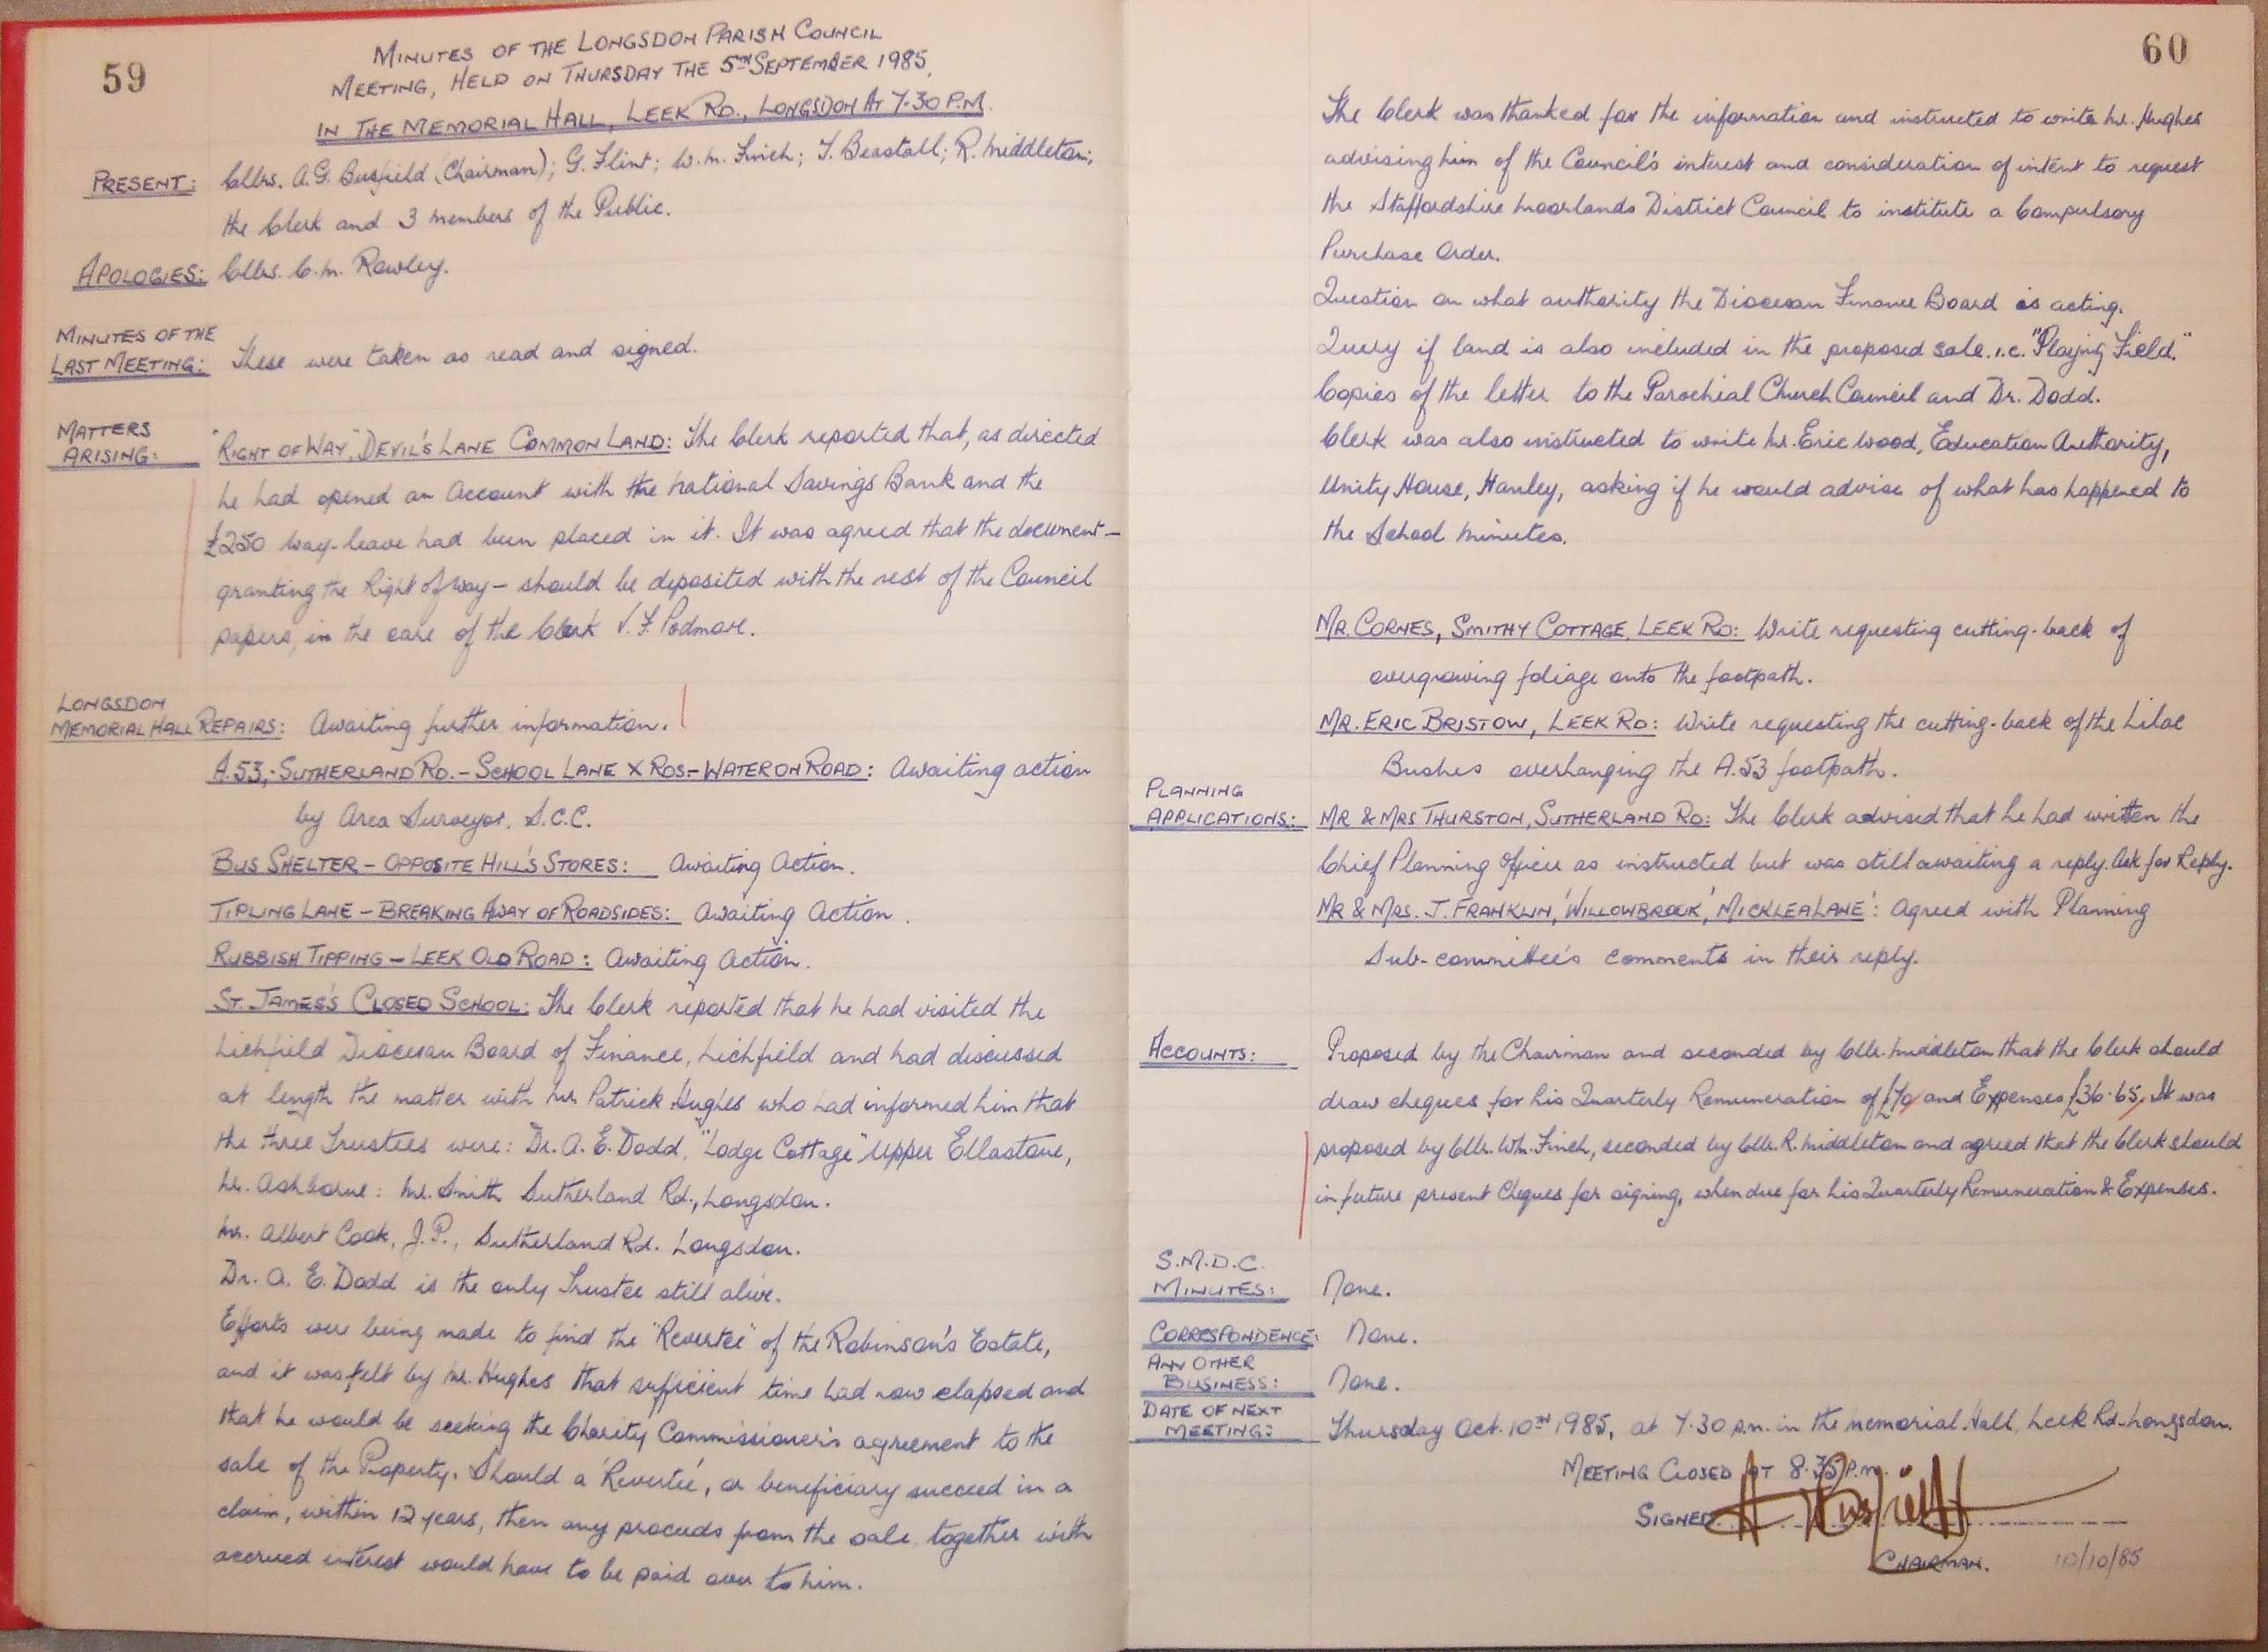 59
MINUTES OF THE LONGSDON PARISH COUNCIL
MEETING, HELD ON THURSDAY THE 5TH SEPTEMBER 1985,
IN THE MEMORIAL HALL, LEEK RD., LONGSDON AT 7.30 P.M.
PRESENT: Cllrs. A.G. Busfield (Chairman); G. Flint; W.M. Finch; T. Beastall; R. Middleton;
the Clerk and 3 members of the Public.
APOLOGIES: Cllrs. C.M. Rowley.
MINUTES OF THE
LAST MEETING: These were taken as read and signed.
MATTERS
ARISING: "RIGHT OF WAY", DEVIL'S LANE COMMON LAND: The Clerk reported that, as directed
he had opened an Account with the National Savings Bank and the
£250 way-leave had been placed in it. It was agreed that the document –
granting the Right of Way – should be deposited with the rest of the Council
papers, in the care of the Clerk V.F. Podmore.
LONGSDON
MEMORIAL HALL REPAIRS: Awaiting further information.
A.53,-SUTHERLAND RD.-SCHOOL LANE X RDS-WATER ON ROAD: Awaiting action
by Area Surveyor, S.C.C.
BUS SHELTER – OPPOSITE HILL'S STORES: Awaiting Action.
TIPLING LANE – BREAKING AWAY OF ROADSIDES: Awaiting Action.
RUBBISH TIPPING – LEEK OLD ROAD: Awaiting Action.
ST. JAMES'S CLOSED SCHOOL: The Clerk reported that he had visited the
Lichfield Diocesan Board of Finance, Lichfield and had discussed
at length the matter with Mr Patrick Hughes who had informed him that
the three Trustees were: Dr. A.E. Dodd, "Lodge Cottage" Upper Ellastone,
Nr. Ashborne: Mr. Smith Sutherland Rd., Longsdon.
Mr. Albert Cook, J.P., Sutherland Rd. Longsdon.
Dr. A. E. Dodd is the only Trustee still alive.
Efforts were being made to find the "Revertee" of the Robinson's Estate,
and it was felt by Mr. Hughes that sufficient time had now elapsed and
that he would be seeking the Charity Commissioner's agreement to the
sale of the Property. Should a 'Revertee', or beneficiary succeed in a
claim, within 12 years, then any proceeds from the sale, together with
accrued interest would have to be paid over to him.
60
The Clerk was thanked for the information and instructed to write Mr. Hughes
advising him of the Council's interest and consideration of intent to request
the Staffordshire Moorlands District Council to institute a Compulsory
Purchase Order.
Question on what authority the Diocesan Finance Board is acting.
Query if land is also included in the proposed sale. i.e. "Playing Field."
Copies of the letter to the Parochial Church Council and Dr. Dodd.
Clerk was also instructed to write Mr. Eric Wood, Education Authority,
Unity House, Hanley, asking if he would advise of what has happened to
the School Minutes.
MR. CORNES, SMITHY COTTAGE, LEEK RD: Write requesting cutting-back of
overgrowing foliage onto the footpath.
MR. ERIC BRISTOW, LEEK RD: Write requesting the cutting-back of the Lilac
Bushes overhanging the A.53 footpath.
PLANNING
APPLICATIONS: MR & MRS THURSTON, SUTHERLAND RD: The Clerk advised that he had written the
Chief Planning Officer as instructed but was still awaiting a reply. Ask for Reply.
MR & MRS. J. FRANKLIN, 'WILLOWBROOK', MICKLEA LANE': Agreed with Planning
Sub-committee's comments in their reply.
ACCOUNTS: Proposed by the Chairman and seconded by Cllr. Middleton that the Clerk should
draw cheques for his Quarterly Remuneration of £70 and Expenses £36.65, It was
proposed by Cllr. W.M. Finch, seconded by Cllr. R. Middleton and agreed that the Clerk should
in future present Cheques for signing, when due for his Quarterly Remuneration & Expenses.
S.M.D.C.
MINUTES: None.
CORRESPONDENCE: None.
ANY OTHER
BUSINESS: None.
DATE OF NEXT
MEETING: Thursday Oct. 10TH 1985, at 7.30 p.m. in the Memorial Hall, Leek Rd. Longsdon.
MEETING CLOSED AT 8.35 P.M.
SIGNED A Busfield
CHAIRMAN. 10/10/85